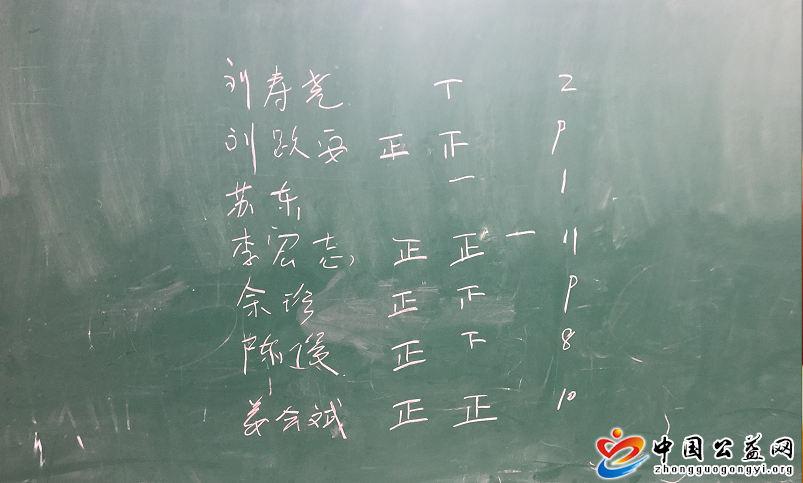 刘寿尧 丅 2
刘跃安 正 正 9
苏东 一 1
李宏志 正 正 一 11
余珍 正 正 9
陈瑗 正 下 8
姜会斌 正 正 10
中国公益网
zhongguogongyi.org